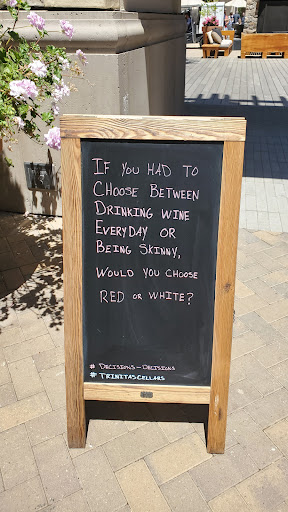 If you had to
Choose Between
Drinking wine
Everyday or
Being skinny,
Would you choose
red or white?
# Decisions-decisions
# Trinitascellars